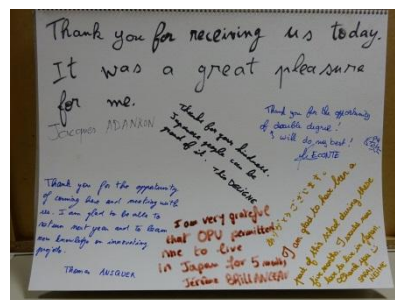 Thank you for receiving us today.
It was a great pleasure
for me.
Jacques ADANKON
Thanks for your kindness.
Japanese people can be
proud of it. Théo
Thank you for the opportunity
of double degree!
I will do my best!
LECONTE
Thank you for the opportunity
of coming here and meeting with
us. I am glad to be able to
return next year and to learn
new knowledge on interesting
projets.
Thomas ANSQUER
I am very grateful
that OPU permitted
me to live
in Japan for 5 months
Jérôme BRILLANCEAU
I am glad to have been a
part of this school during these
five months. I
how to live in Japan
Thank you